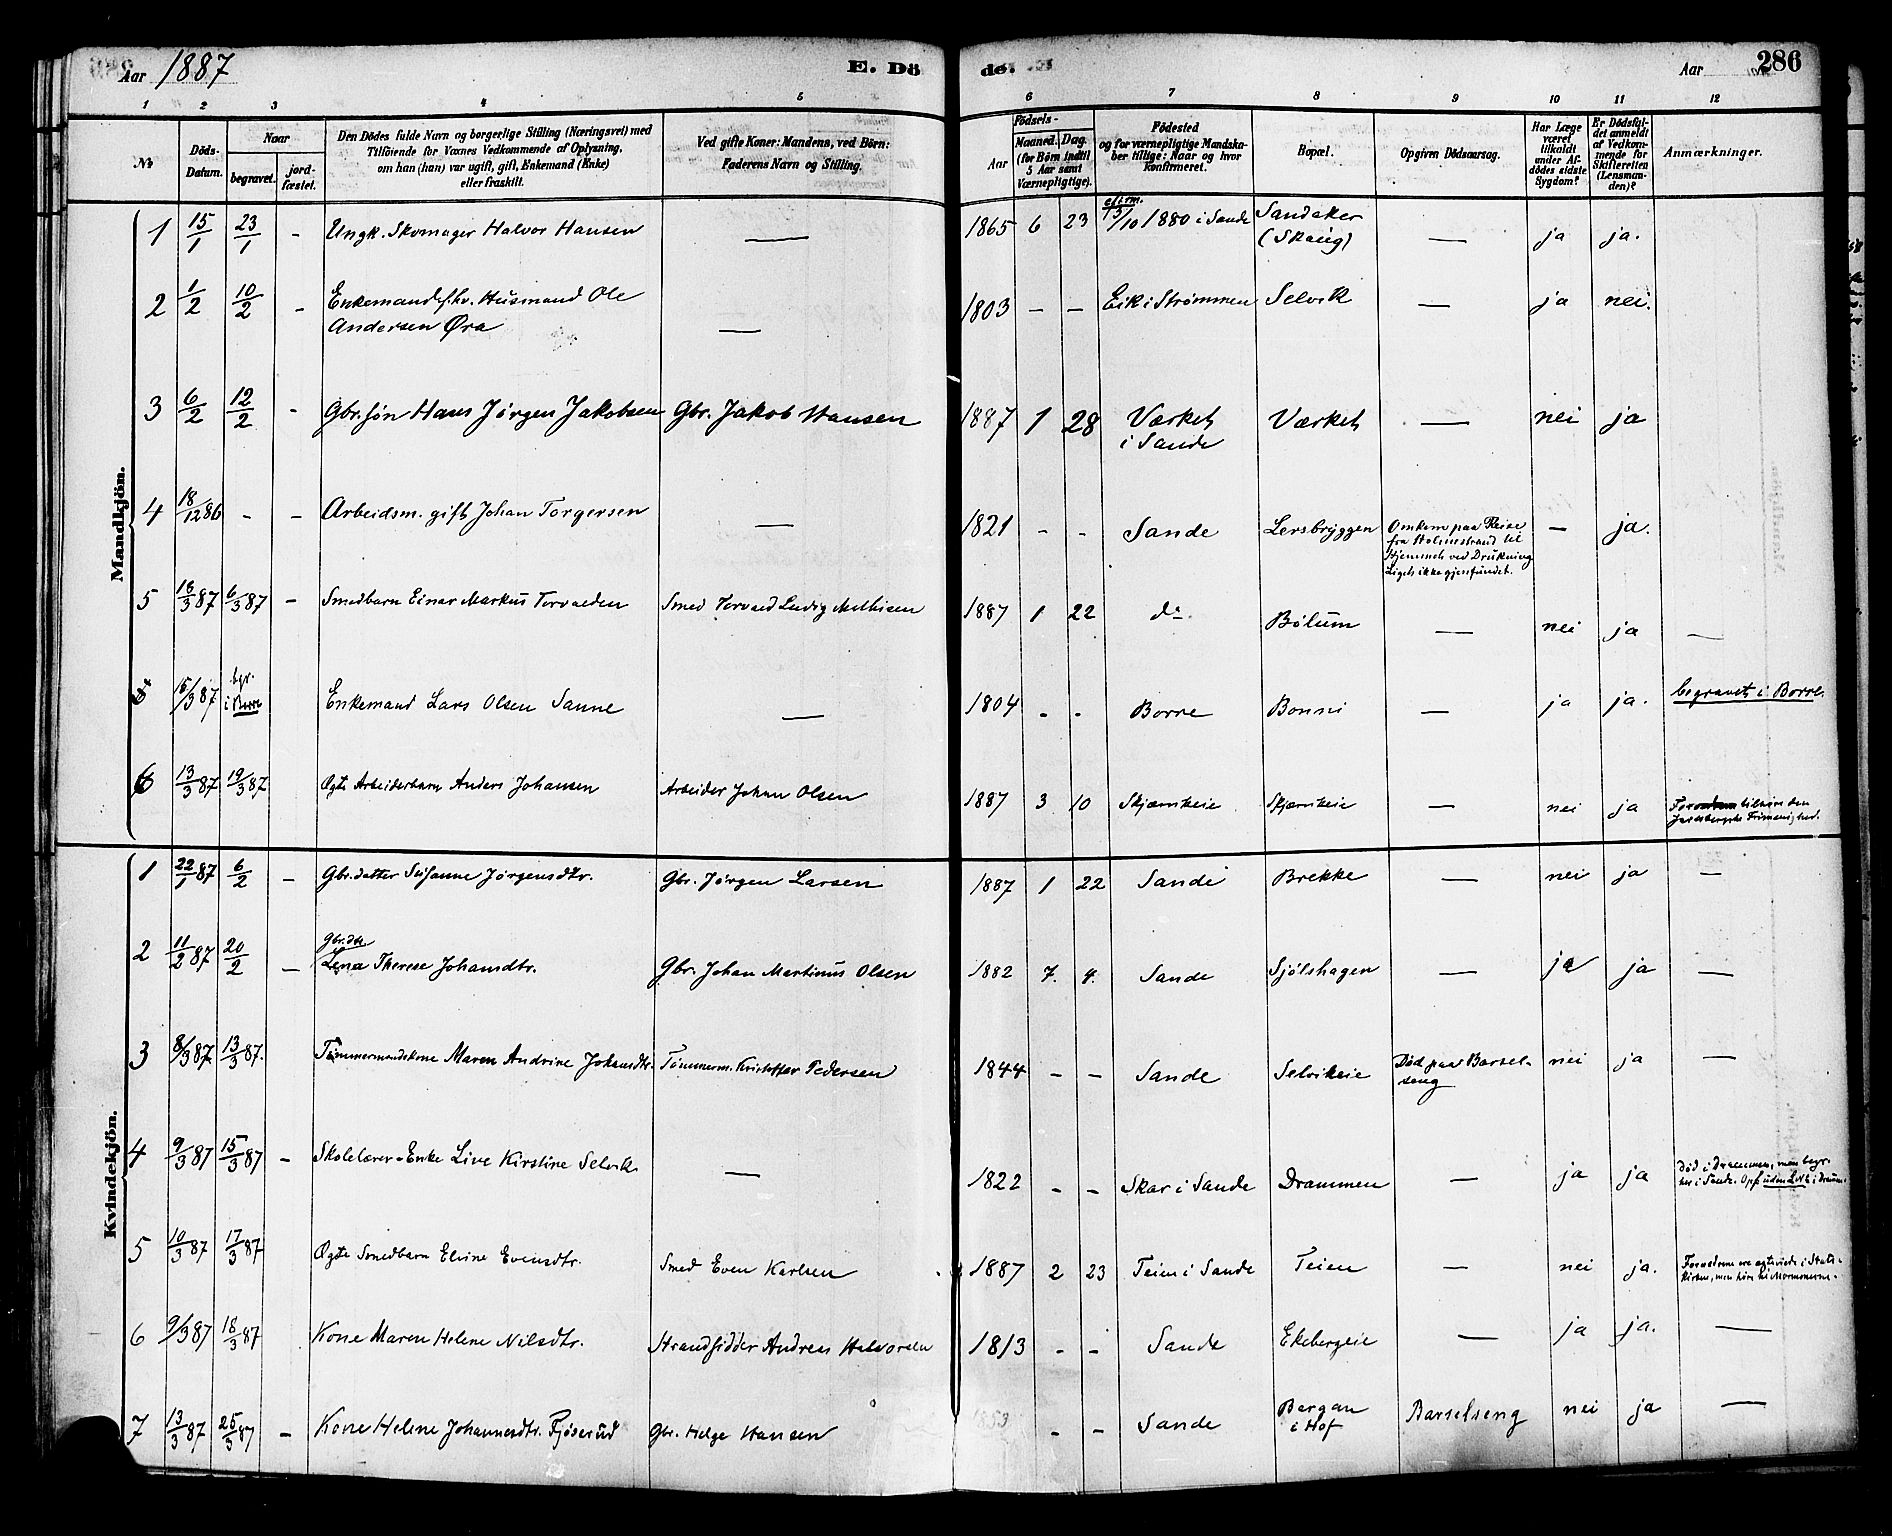 Aar 1887 E. Dö de. Aar 286
1 2 3 4 5 6 7 8 9 10 11 12
No Döds-Datum. Naar begravet. jordfæstet. Den Dödes fulde Navn og borgerlige Stilling (Næringsvei) med Tilföiende for Voxnes Vedkommende af Oplysning, om han (hun) var ugift, gift, Enkemand (Enke) eller fraskilt. Ved gifte Koner: Mandens, ved Börn: Faderens Navn og Stilling. Födsels- Aar Maaned. Dag. (for Börn indtil 5 Aar samt Værnepligtige). Födested og for værnepligtige Mandskaber tillige: Naar og hvor Konfirmeret. Bopæl. Opgiven Dödsaarsag. Har Læge været tilkaldt under Afdödes sidste Sygdom? Er Dödsfaldet anmeldt af Vedkommende for Skifteretten (Lensmanden)? Anmærkninger.
Mandkjön.
1 15/1 23/1 - Ungk. Skomager Halvor Hansen — 1865 6 23 13/10 1880 i Sande Sandaker (Skaug) — ja ja.
2 1/2 10/2 - Enkemand f.hv. Husmand Ole
Andersen Øra — 1803 - - Eik i Strømmen Selvik — ja nei.
3 6/2 12/2 - Gbr.søn Hans Jørgen Jakobsen Gbr. Jakob Hansen 1887 1 28 Værket i Sande Værket — nei ja
4 18/12 86 - - Arbeidsm. gift Johan Torgersen — 1821 - - Sande Lersbryggen Omkom paa Reise
fra Holmestrand til
Hjemmet ved Drukning
Liget ikke gjenfundet. — ja.
5 18/3 87 6/3 87 - Smedbarn Einar Markus Torvalden Smed Torvald Ludvig Mathisen 1887 1 22 do. Bölum — nei ja —
15/3 87 begr. i Borre Enkemand Lars Olsen Sanne — 1804 - - Borre Bonni — ja ja. begravet i Borre.
6 13/3 87 19/3 87 Ægte Arbeiderbarn Anders Johansen Arbeider Johan Olsen 1887 3 10 Skjærmeie Skjærmeie — nei ja tilhøre den
Jarlsbergske Frimenighed.
Kvindekjön.
1 22/1 87 6/2 - Gbr.datter Susanne Jørgensdtr. Gbr. Jørgen Larsen 1887 1 22 Sande Brekke — nei ja —
2 11/2 87 20/2 - Gbr.dtr
Lena Therese Johansdtr. Gbr. Johan Martinus Olsen 1882 7. 4. Sande Sjølshagen — ja ja —
3 8/3 87 13/3 87. Tømmermandskone Maren Andrine Johansdtr. Tømmerm. Kristoffer Pedersen 1844 - - Sande Selvikeie Död paa Barsel-
seng nei ja —
4 9/3 87 15/3 87 - Skolelærer-Enke Live Kirstine Selvik — 1822 - - Skar i Sande Drammen — ja ja död i Drammen, men begr.
her i Sande.
5 10/3 87 17/3 87 Ægte Smedbarn Elvine Evensdtr. Smed Even Karlsen 1887 2 23 Teien i Sande Teien — nei ja. Forældrene ere ægteviede i Stats-
kirken, men höre til Mormonerne.
6 9/3 87 18/3 87 Kone Maren Helene Nilsdtr. Strandsidder Andreas Halvorsen 1813 - - Sande Ekebergeie — ja ja. —
7 13/3 87 25/3 87 - Kone Helene Johannesdtr. Fjöserud Gbr. Helge Hansen 1853 - - Sande Bergan
i Hof Barselseng nei ja —